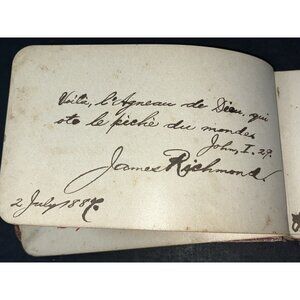 Voila, l'Agneau de Dieu, qui
ote le péché du monde.
John, I. 29.
James Richmond
2 July 1887.